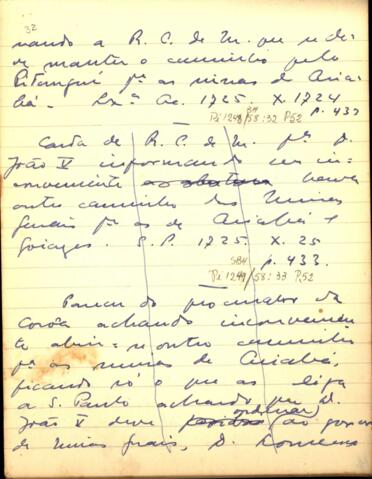 32
nando a R. C. de M. que se de-
ve manter o caminho pelo
Pitangui pª as minas de Cuia-
bá. Lxª Oc. 1725. X. 1724
p. 433
Pi 1248/58:32 P,52
BN
Carta de R. C. de M. pª D.
João V informando ser in-
conveniente haver
outro caminho das Minas
Gerais pª as de Cuiabá e
Goiazes. S.P. 1725. X. 25
SBH p. 433.
Pi 1249/58:33 P,52
Parecer do procurador da
Corôa achando inconvenien-
te abrir-se outro caminho
pª as minas de Cuiabá,
ficando só o que as liga
a S. Paulo achando que D.
João V deve ordenar ao gover.
de Minas Gerais, D. Lourenço